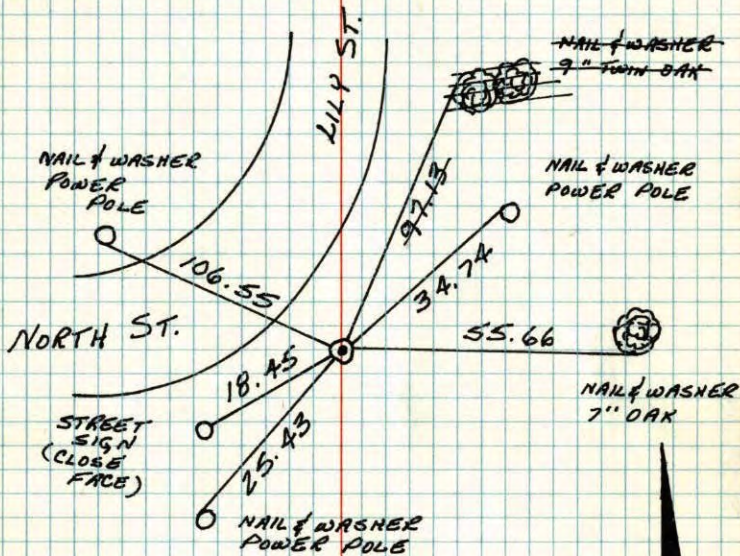 LILY ST.
NAIL & WASHER
9" TWIN OAK
NAIL & WASHER
POWER
POLE
NAIL & WASHER
POWER POLE
97.13
34.74
106.55
55.66
NORTH ST.
18.45
NAIL & WASHER
7" OAK
STREET
SIGN
(CLOSE
FACE)
25.43
NAIL & WASHER
POWER POLE